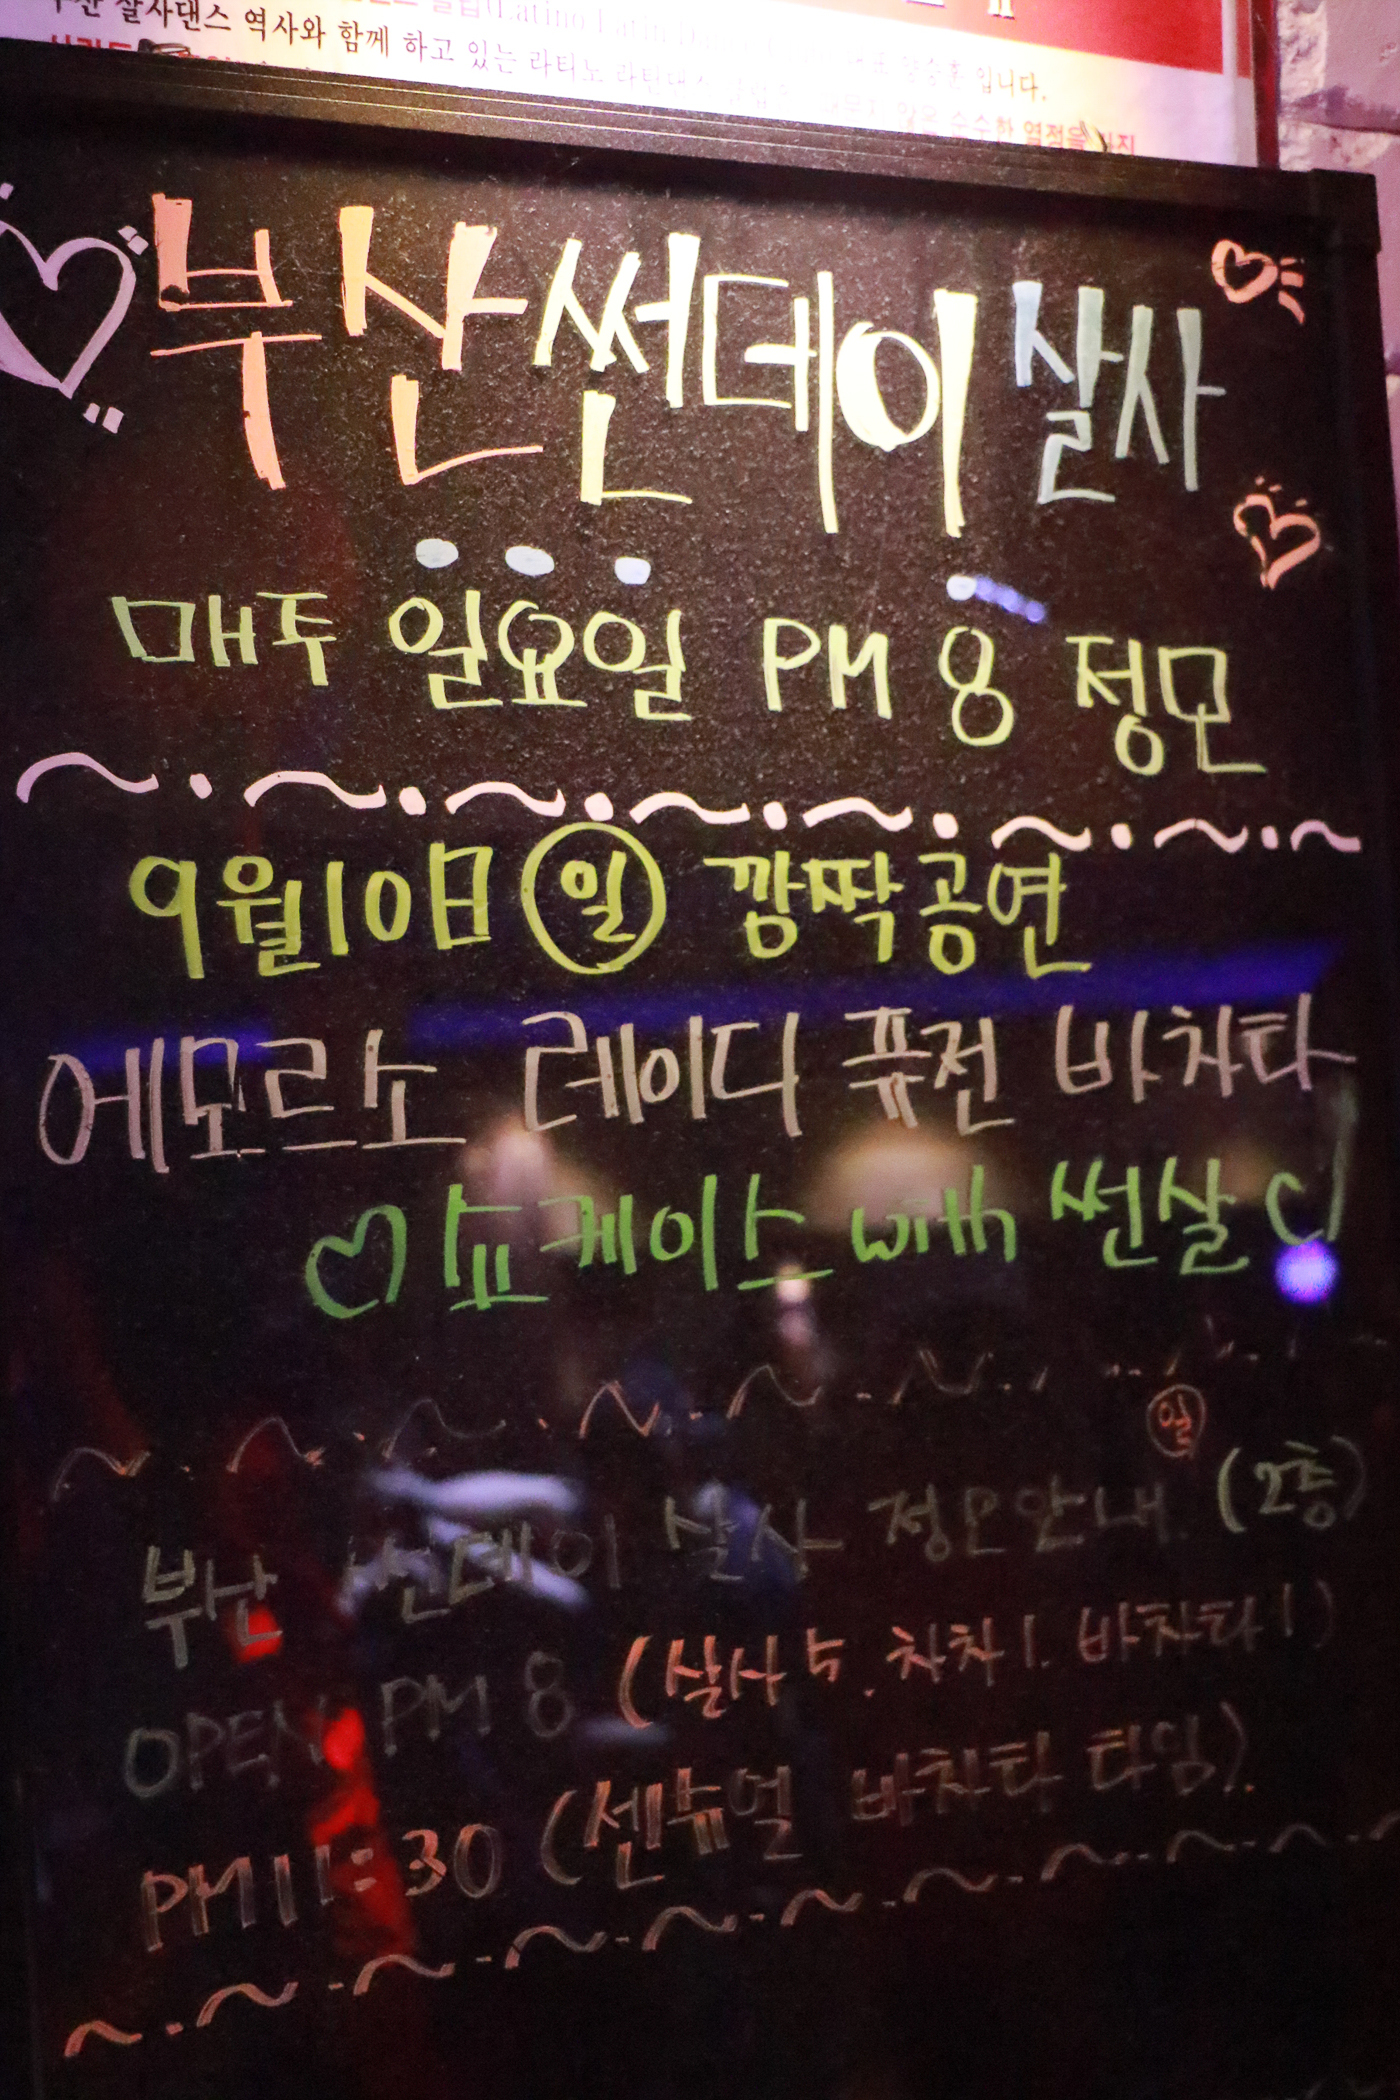 부산 살사댄스 역사와 함께 하고 있는 라티노 라틴댄스 클럽 입니다.
않은 순수한 열정을
부산 썬데이 살사
매주 일요일 PM 8 정모
9월10日 일 깜짝공연
에모르소 레이디 퓨전 바차타
쇼케이스 with 썬살
일
부산 썬데이 살사 정모안내 (2층)
OPEN PM 8 (살사 5. 차차 1. 바차타 1)
PM 11:30 (센슈얼 바차타 타임).